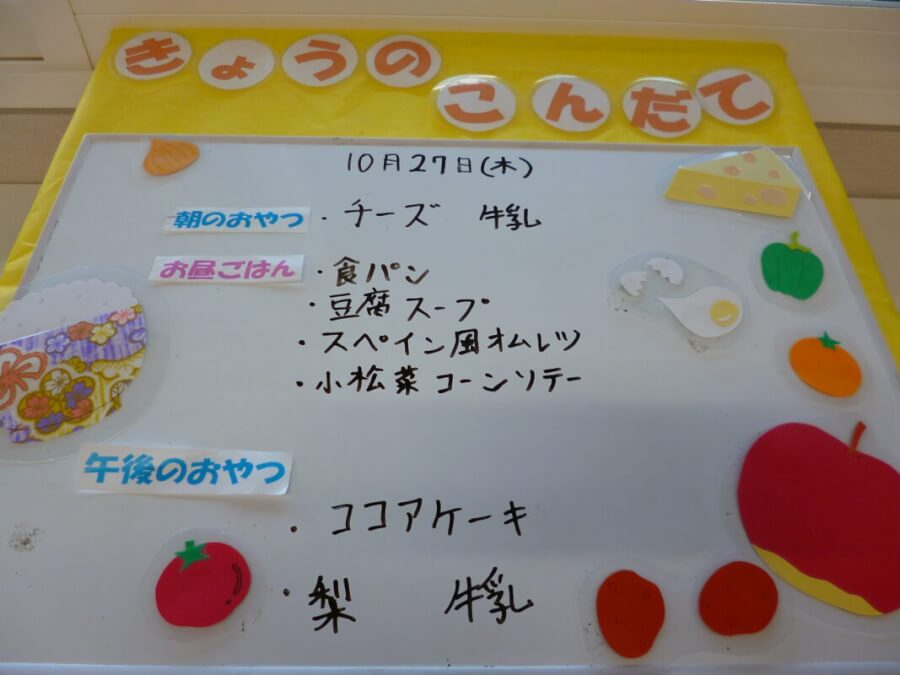 きょうの
こんだて
10月27日(木)
朝のおやつ ・チーズ 牛乳
お昼ごはん ・食パン
・豆腐スープ
・スペイン風オムレツ
・小松菜コーンソテー
午後のおやつ
・ココアケーキ
・梨 牛乳